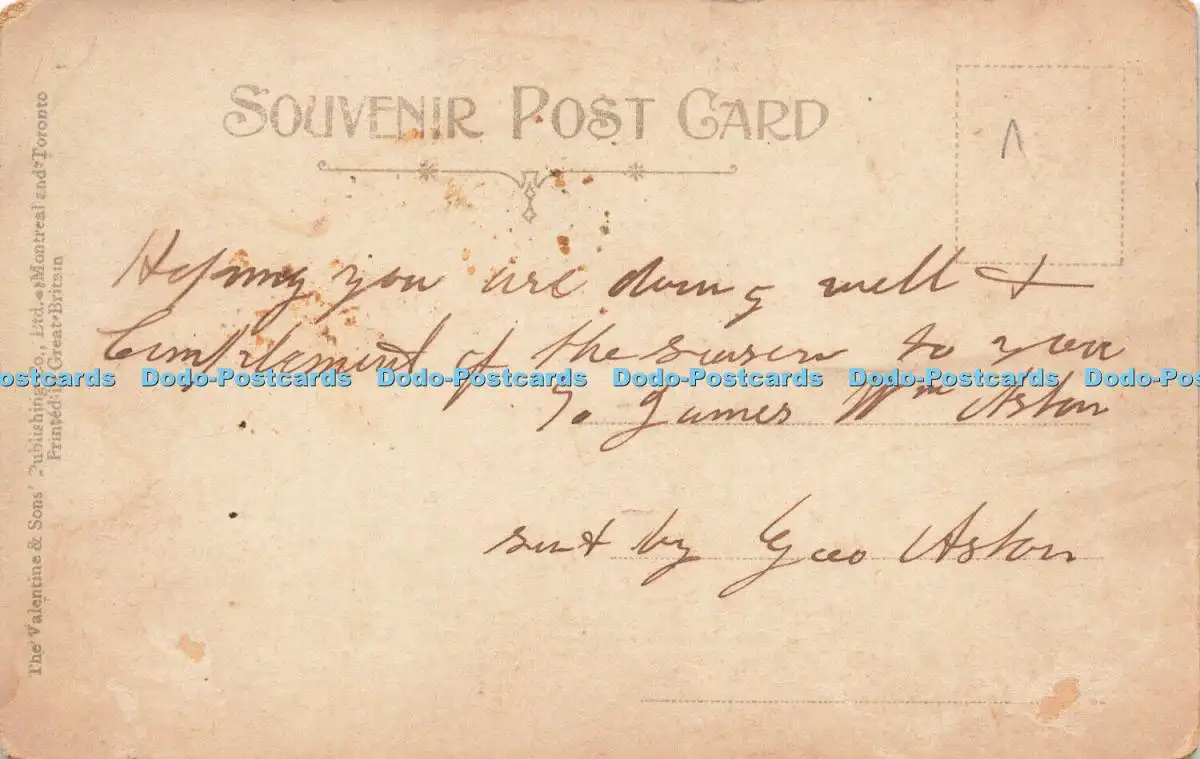 SOUVENIR POST CARD
Hoping you are doing well &
Compliment of the season to you
To James Wm Aston
sent by Geo Aston
The Valentine & Sons' Publishing Co., Ltd. Montreal and Toronto
Printed in Great Britain
ostcards Dodo-Postcards Dodo-Postcards Dodo-Postcards Dodo-Postcards Dodo-Pos